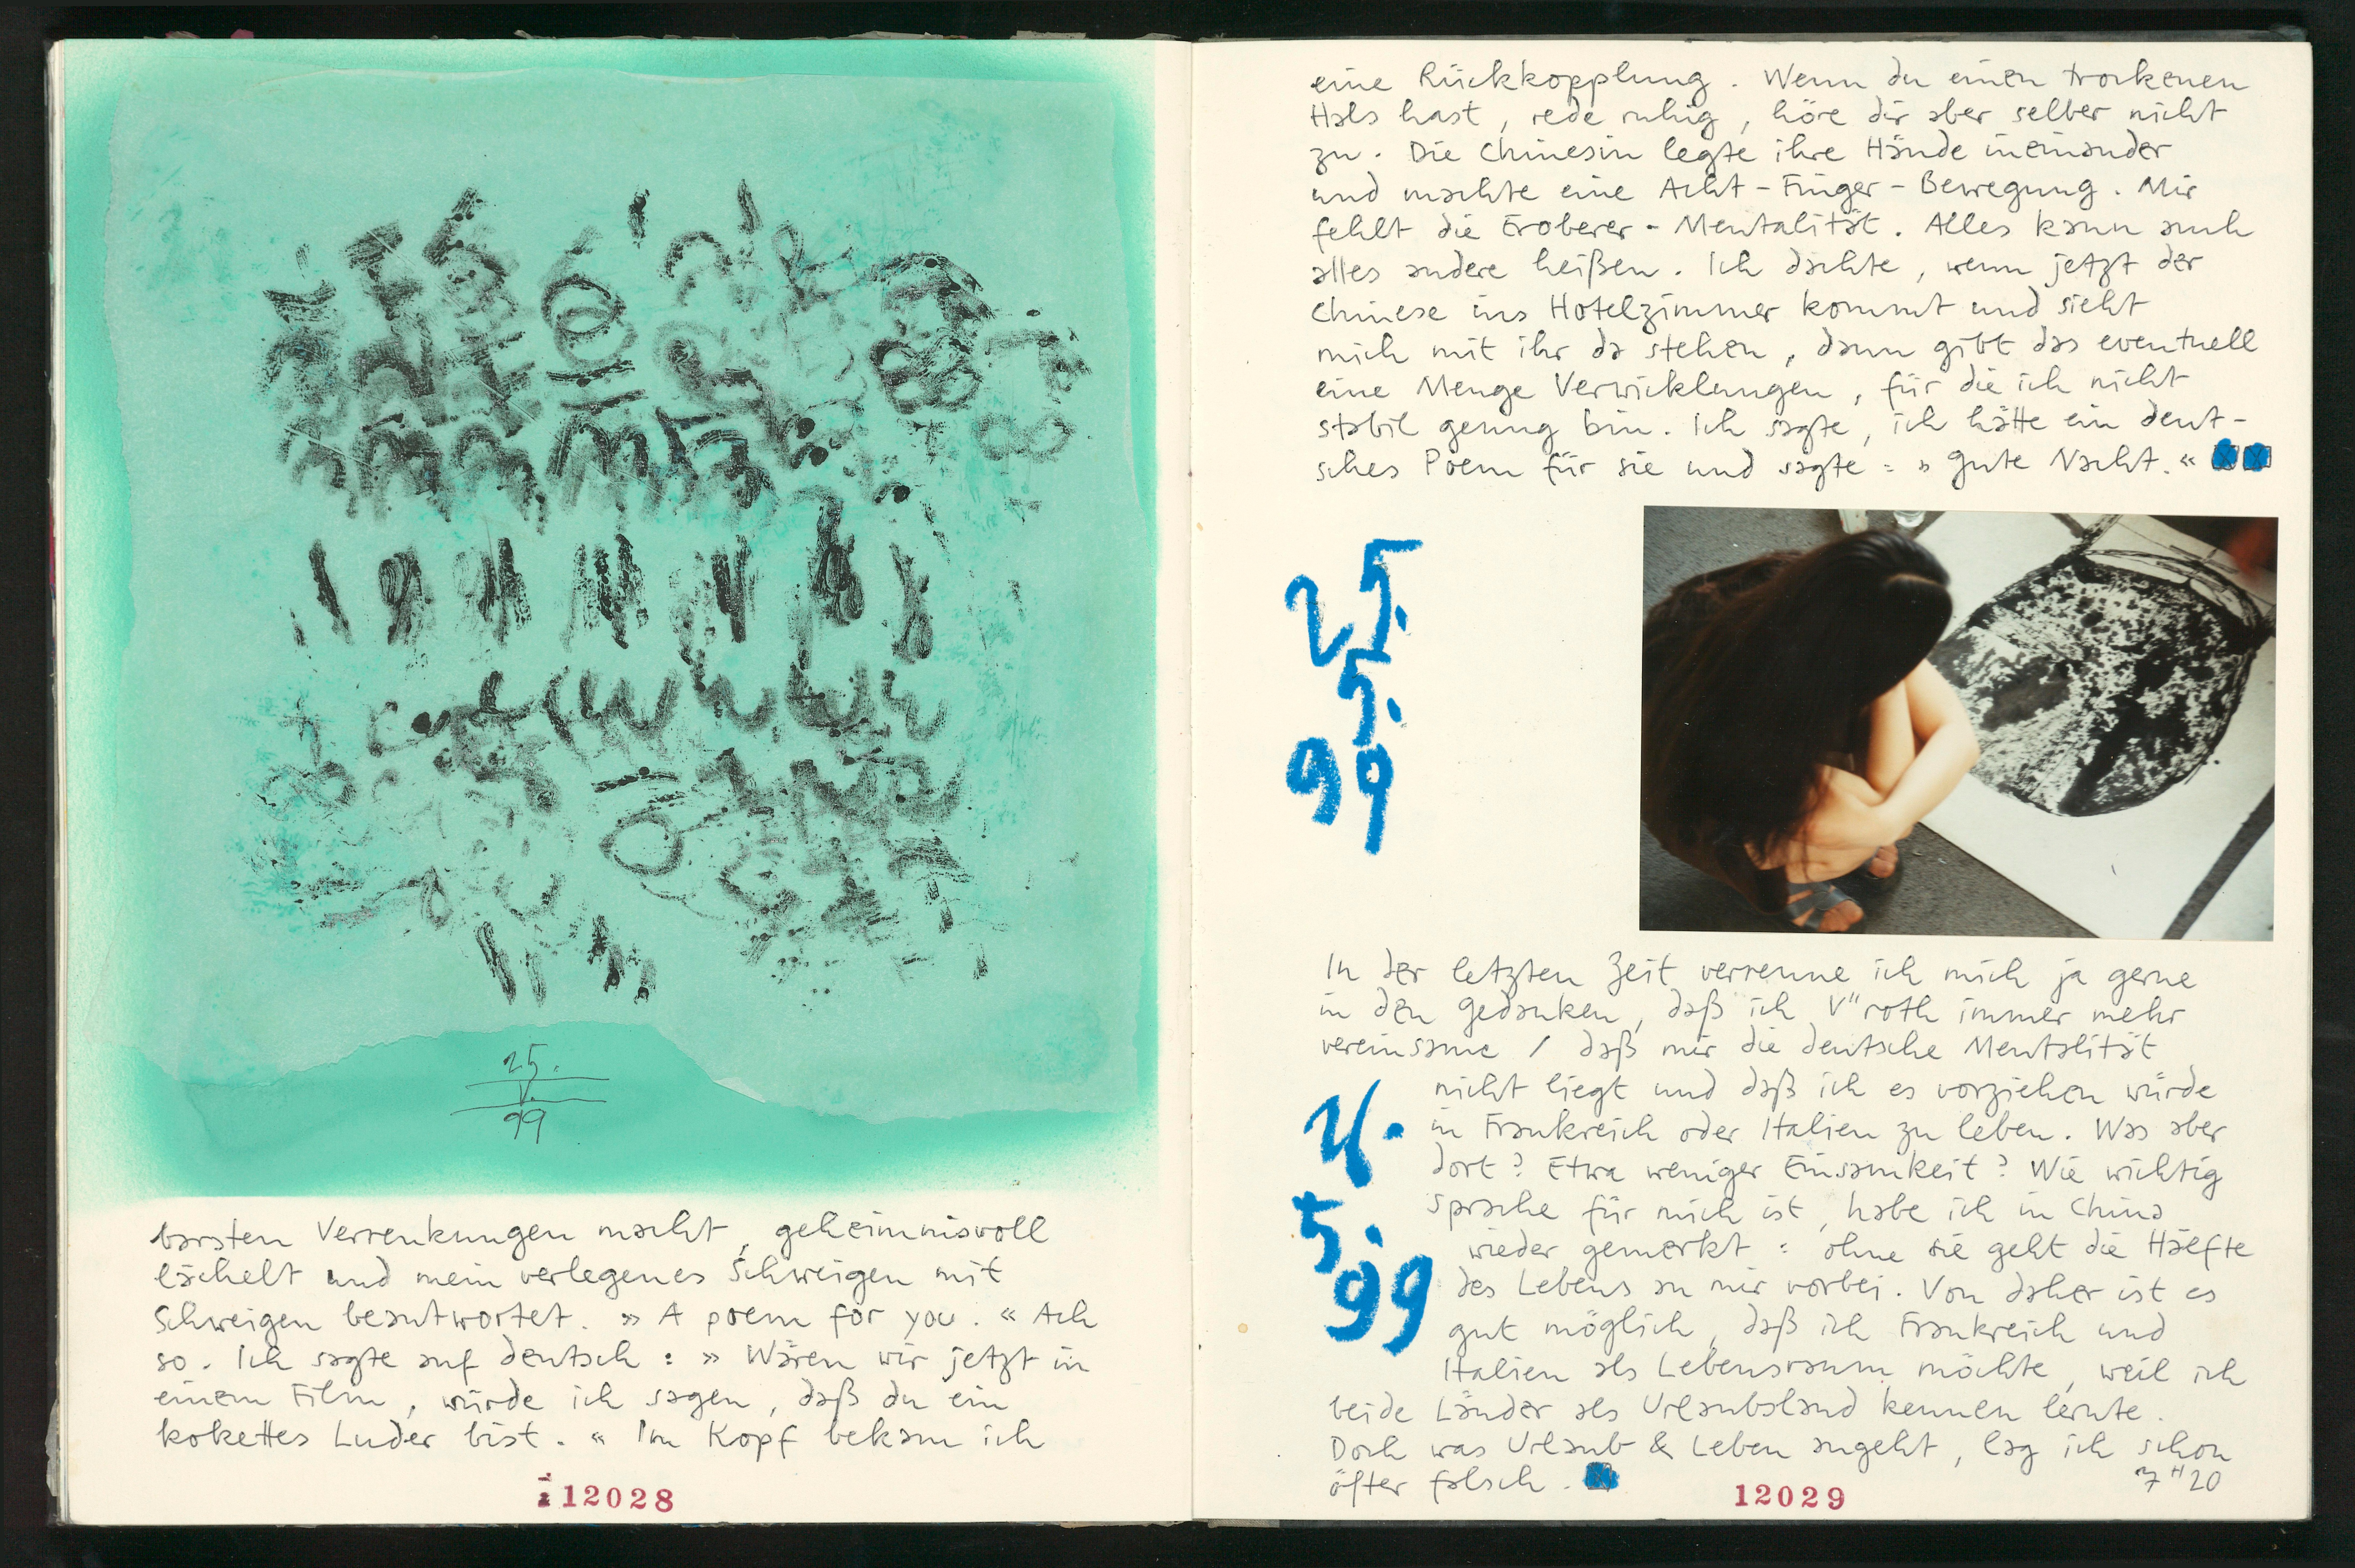 25.
V.
99
barsten Verrenkungen macht, geheimnisvoll
lächelt und mein verlegenes Schweigen mit
Schweigen beantwortet. » A poem for you. « Ach
so. Ich sagte auf deutsch : » Wären wir jetzt in
einem Film, würde ich sagen, daß du ein
kokettes Luder bist. « Im Kopf bekam ich
12028
eine Rückkopplung. Wenn du einen trockenen
Hals hast, rede ruhig, höre dir aber selber nicht
zu. Die Chinesin legte ihre Hände ineinander
und machte eine Acht-Finger-Bewegung. Mir
fehlt die Eroberer-Mentalität. Alles kann auch
alles andere heißen. Ich dachte, wenn jetzt der
Chinese ins Hotelzimmer kommt und sieht
mich mit ihr da stehen, dann gibt das eventuell
eine Menge Verwicklungen, für die ich nicht
stabil genug bin. Ich sagte, ich hätte ein deut-
sches Poem für sie und sagte : » Gute Nacht. «
25.
5.
99
In der letzten Zeit verrenne ich mich ja gerne
in den Gedanken, daß ich V"roth immer mehr
vereinsame / daß mir die deutsche Mentalität
nicht liegt und daß ich es vorziehen würde
in Frankreich oder Italien zu leben. Was aber
dort? Etwa weniger Einsamkeit? Wie wichtig
Sprache für mich ist, habe ich in China
wieder gemerkt : ohne sie geht die Hälfte
des Lebens an mir vorbei. Von daher ist es
gut möglich, daß ich Frankreich und
Italien als Lebensraum möchte, weil ich
beide Länder als Urlaubsland kennen lernte.
Doch was Urlaub & Leben angeht, lag ich schon
öfter falsch.
26.
5.
99
7"20
12029